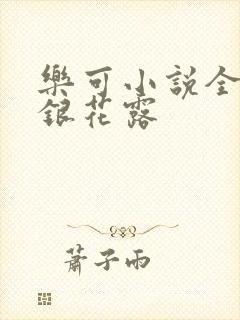 樂可小說全
銀花露
蕭子雨